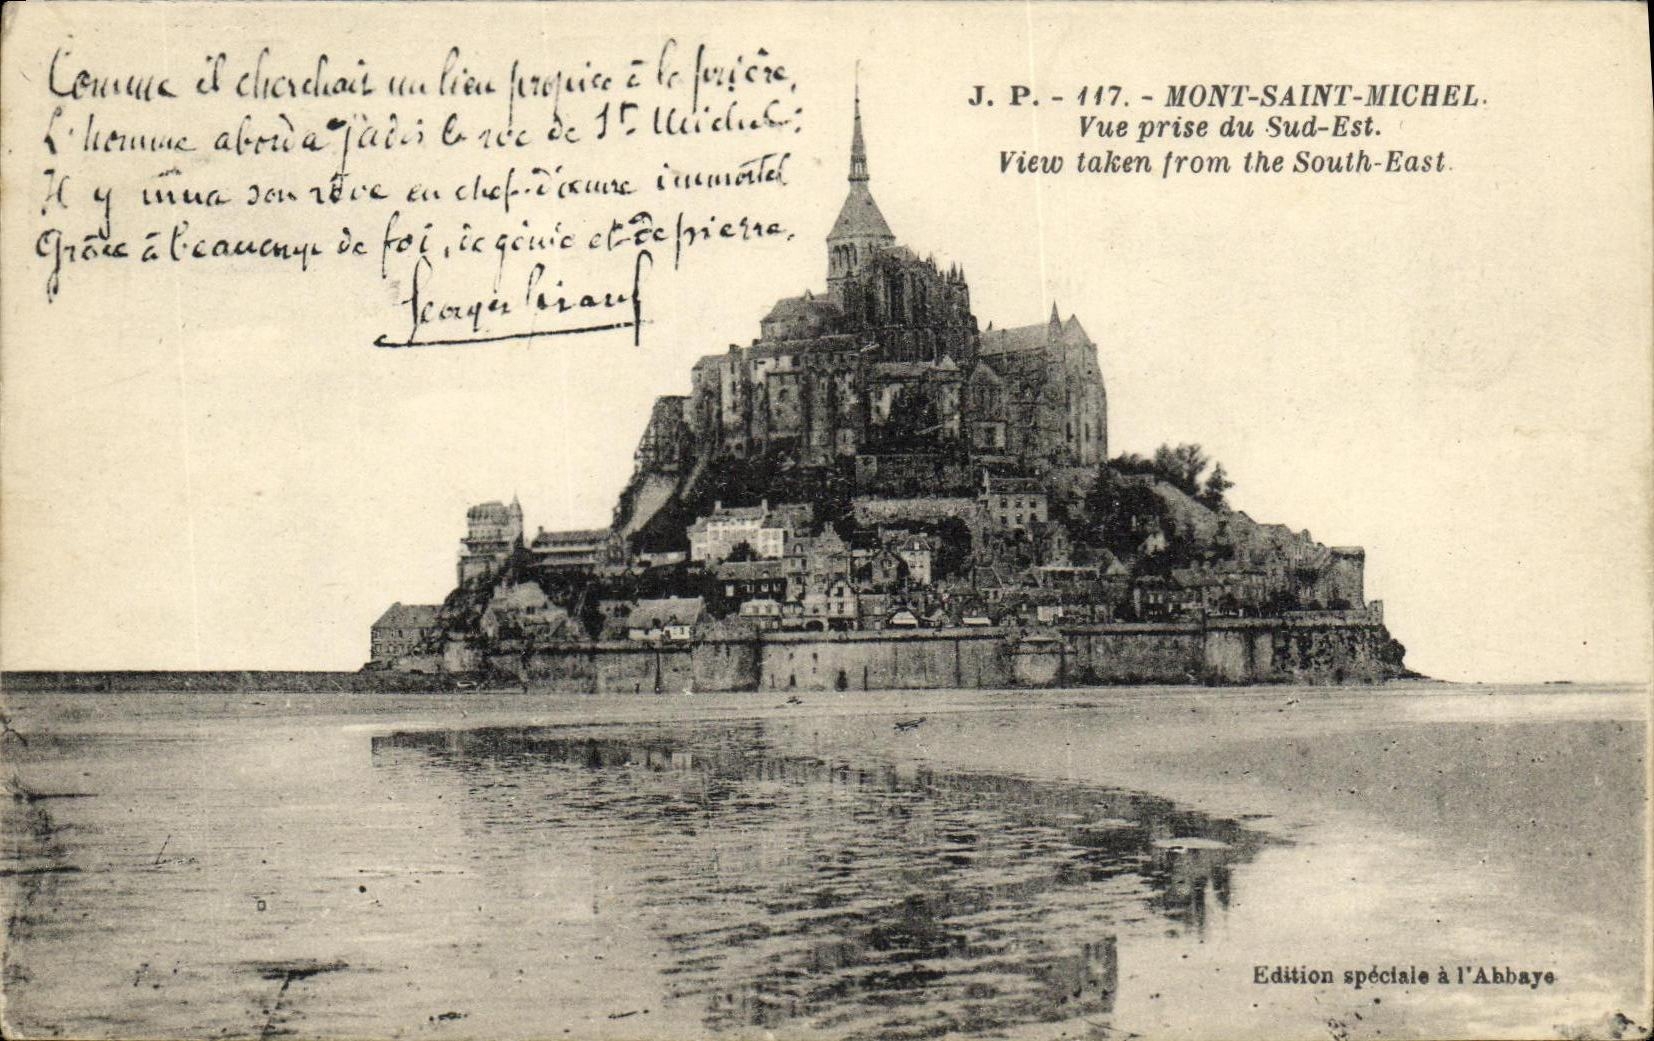 Comme il cherchait un lieu propice à la prière,
L'homme aborda jadis le roc de St Michel:
Il y mua son rêve en chef-d'œuvre immortel
Grâce à beaucoup de foi, de génie et de pierre.
Georges
J. P. - 117. - MONT-SAINT-MICHEL.
Vue prise du Sud-Est.
View taken from the South-East.
Edition spéciale à l'Abbaye